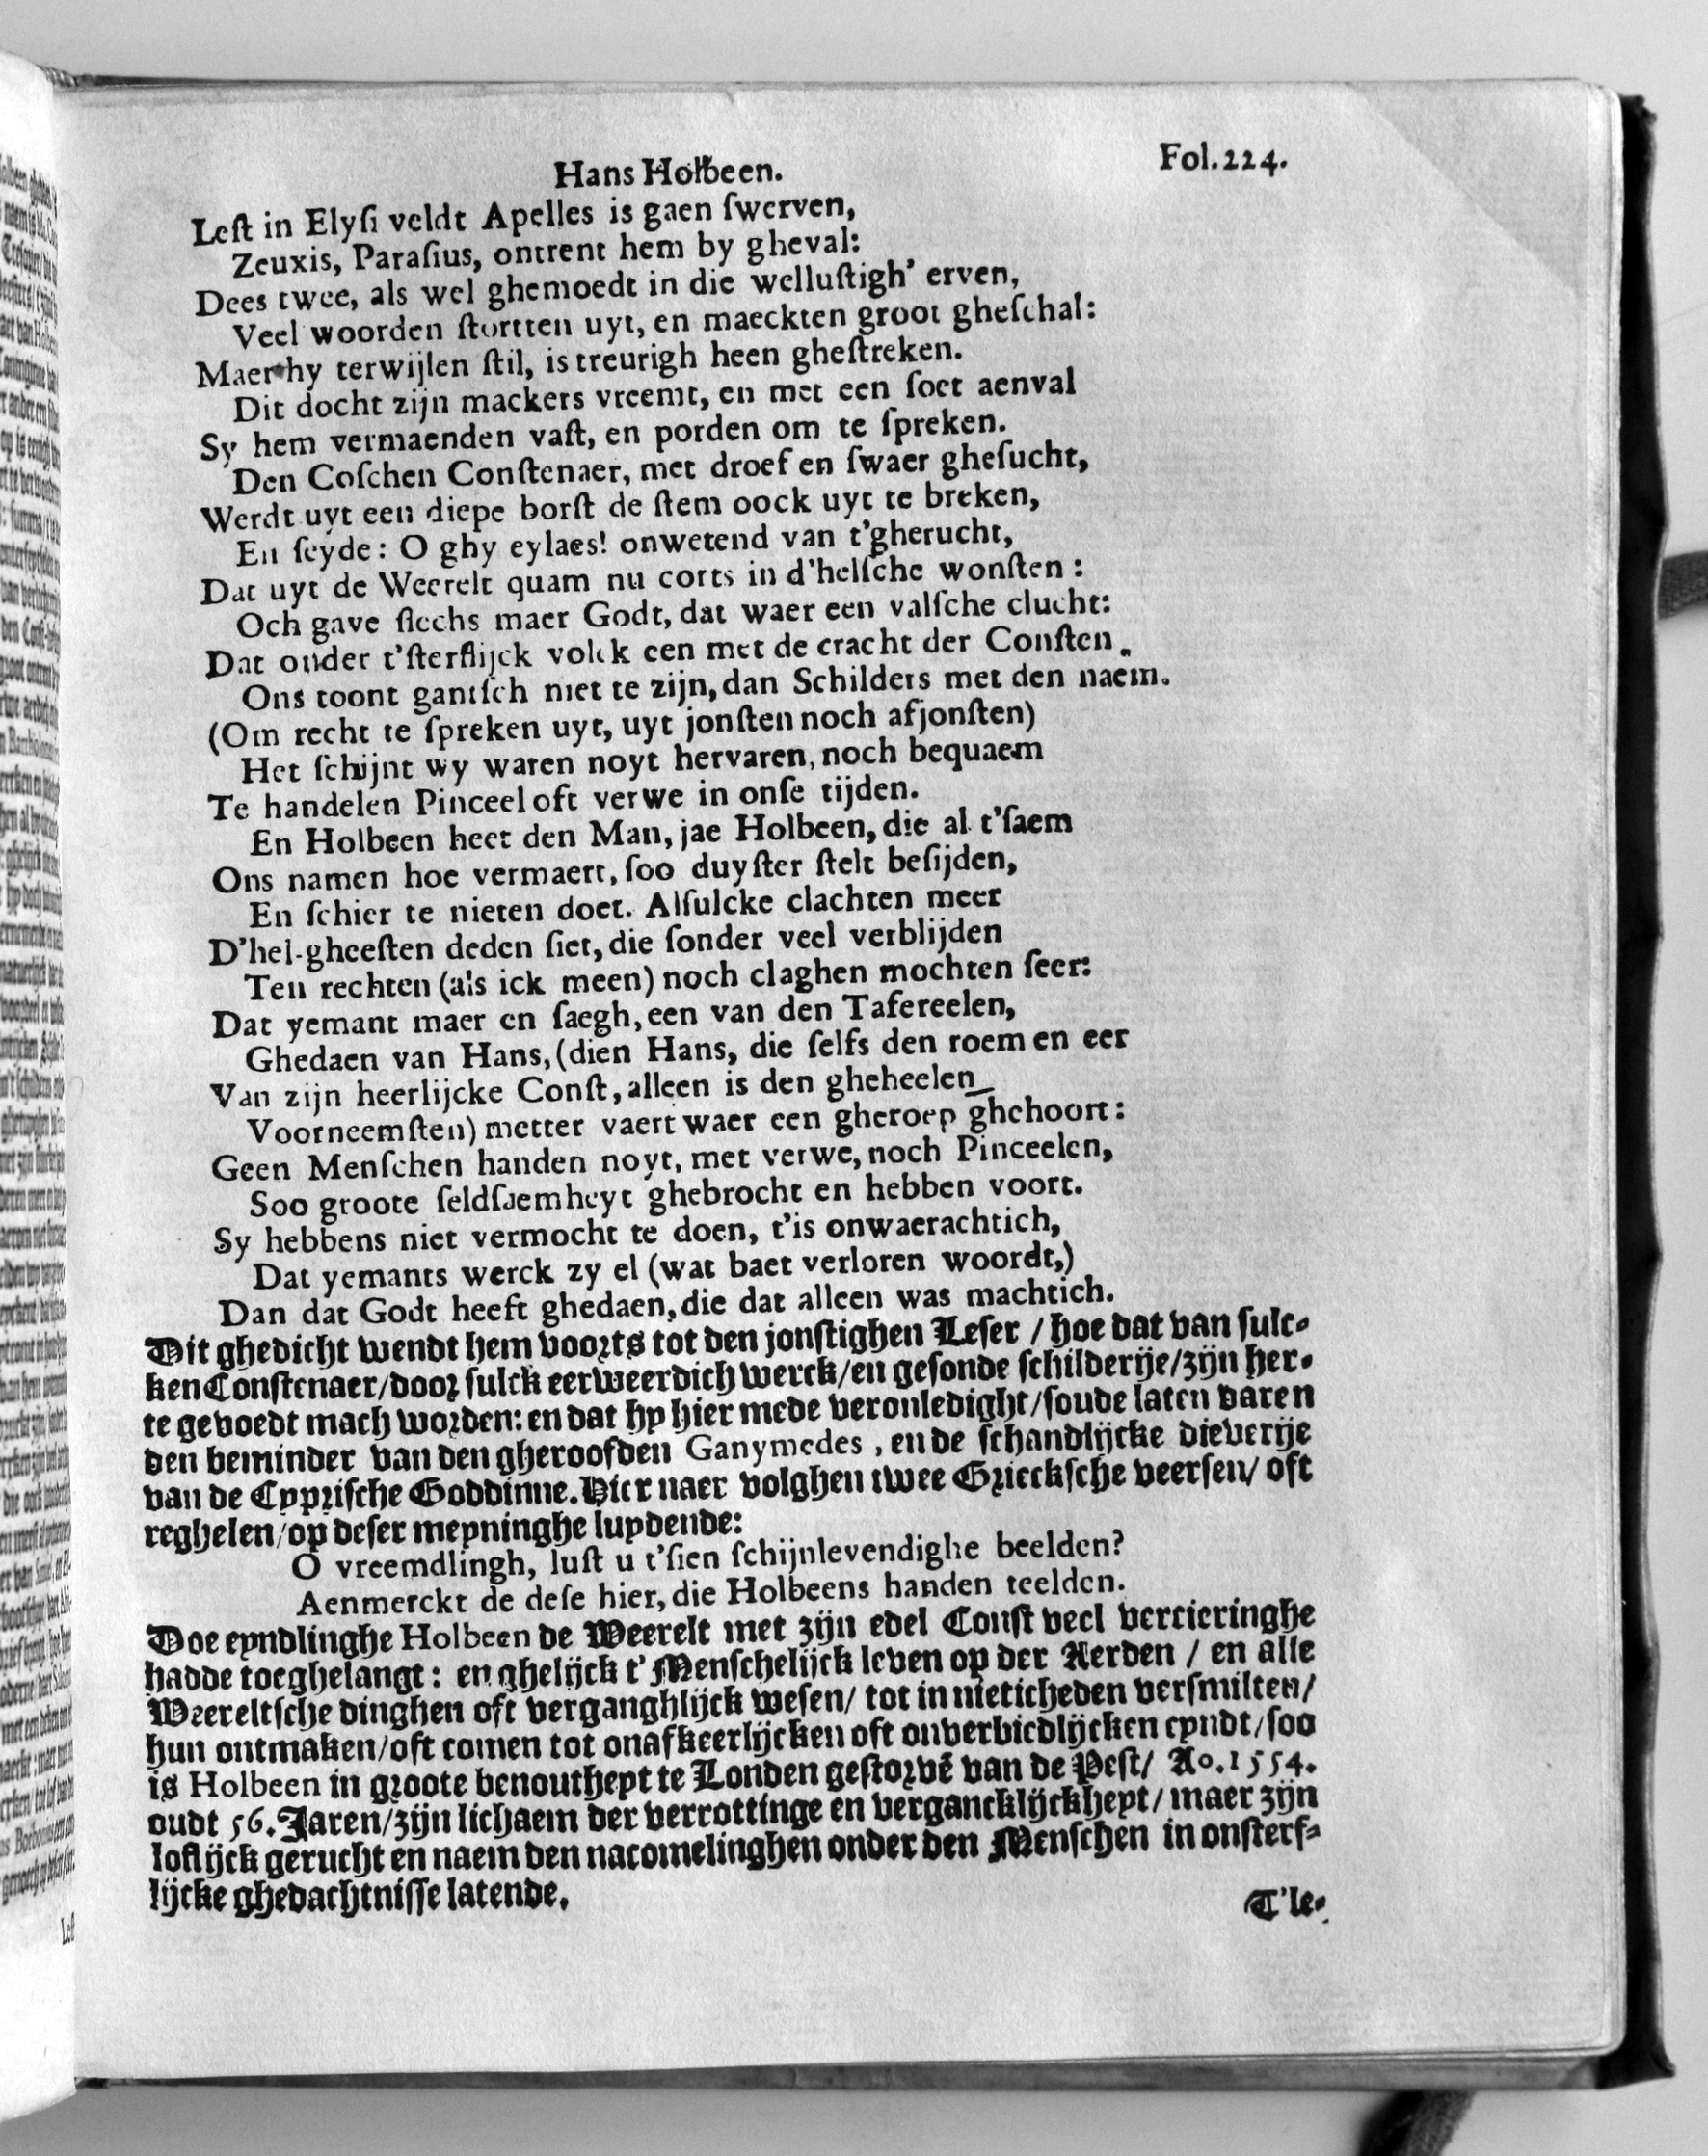 Hans Holbeen.
Fol.224.
Leſt in Elyſi veldt Apelles is gaen ſwerven,
Zeuxis, Paraſius, ontrent hem by gheval:
Dees twee, als wel ghemoedt in die welluſtigh' erven,
Veel woorden ſtortten uyt, en maeckten groot gheſchal:
Maer hy terwijlen ſtil, is treurigh heen gheſtreken.
Dit docht zijn mackers vreemt, en met een ſoet aenval
Sy hem vermaenden vaſt, en porden om te ſpreken.
Den Coſchen Conſtenaer, met droef en ſwaer gheſucht,
Werdt uyt een diepe borſt de ſtem oock uyt te breken,
En ſeyde: O ghy eylaes! onwetend van t'gherucht,
Dat uyt de Weerelt quam nu corts in d'helſche wonſten:
Och gave ſlechs maer Godt, dat waer een valſche clucht:
Dat onder t'ſterflijck volck een met de cracht der Conſten
Ons toont gantſch niet te zijn, dan Schilders met den naem.
(Om recht te ſpreken uyt, uyt jonſten noch afjonſten)
Het ſchijnt wy waren noyt hervaren, noch bequaem
Te handelen Pinceel oft verwe in onſe tijden.
En Holbeen heet den Man, jae Holbeen, die al t'ſaem
Ons namen hoe vermaert, ſoo duyſter ſtelt beſijden,
En ſchier te nieten doet. Alſulcke clachten meer
D'hel-gheeſten deden ſiet, die ſonder veel verblijden
Ten rechten (als ick meen) noch claghen mochten ſeer:
Dat yemant maer en ſaegh, een van den Tafereelen,
Ghedaen van Hans, (dien Hans, die ſelfs den roem en eer
Van zijn heerlijcke Conſt, alleen is den gheheelen
Voorneemſten) metter vaert waer een gheroep ghehoort:
Geen Menſchen handen noyt, met verwe, noch Pinceelen,
Soo groote ſeldſaemheyt ghebrocht en hebben voort.
Sy hebbens niet vermocht te doen, t'is onwaerachtich,
Dat yemants werck zy el (wat baet verloren woordt,)
Dan dat Godt heeft ghedaen, die dat alleen was machtich.
Dit ghedicht wendt hem voorts tot den jonſtighen Leſer / hoe dat van ſulc-
ken Conſtenaer/door ſulck eerweerdich werck/en geſonde ſchilderije/zijn her-
te gevoedt mach worden: en dat hy hier mede veronledight/ſoude laten varen
den beminder van den gheroofden Ganymedes , en de ſchandlijcke dieverije
van de Cyprische Goddinne. Hier naer volghen twee Griecksche veerſen/ oft
reghelen/op deſer meyninghe luydende:
O vreemdlingh, luſt u t'ſien ſchijnlevendighe beelden?
Aenmerckt de deſe hier, die Holbeens handen teelden.
Doe eyndlinghe Holbeen de Weerelt met zijn edel Conſt veel vercieringhe
hadde toeghelangt: en ghelijck t'Menſchelijck leven op der Aerden / en alle
Weereltſche dinghen oft verganghlijck weſen/ tot in nieticheden verſmilten/
hun ontmaken/oft comen tot onafkeerlijcken oft onverbiedlijcken eyndt/ſoo
is Holbeen in groote benoutheyt te Londen geſtorvē van de Peſt/ Ao.1554.
oudt 56. Jaren/zijn lichaem der verrottinge en vergancklijckheyt/ maer zijn
loflijck gerucht en naem den nacomelinghen onder den Menſchen in onſterf-
lijcke ghedachtniſſe latende.
T'le-